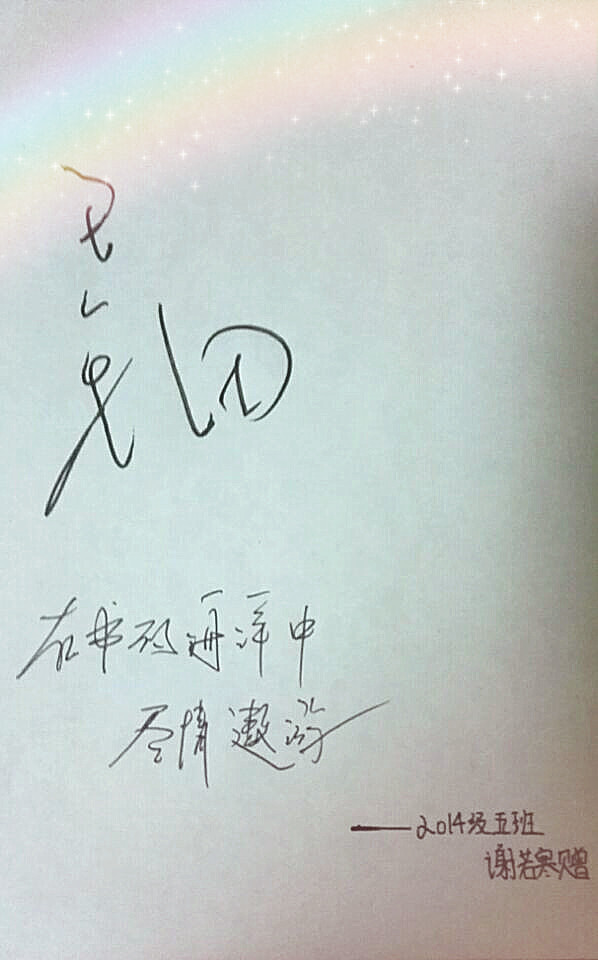 在书的海洋中
尽情遨游
——2014级五班
谢若寒赠